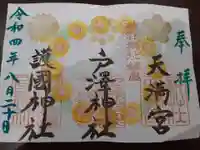 奉拝
天満宮
戸澤神社
護國神社
令和四年八月二十日